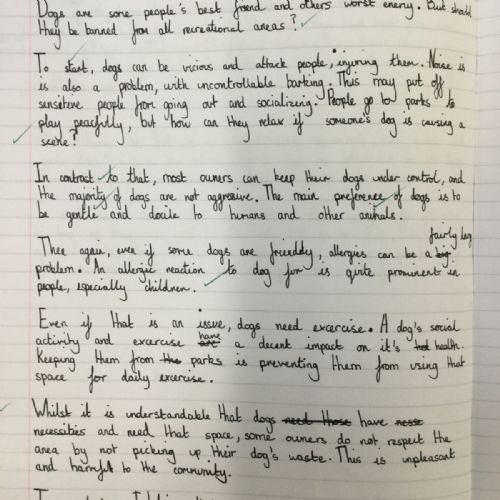 Dogs are some people's best friend and others worst enemy. But should
they be banned from all recreational areas?
To start, dogs can be vicious and attack people, injuring them. Noise is
is also a problem, with uncontrollable barking. This may put off
sensitive people from going out and socializing. People go to parks to
play peacfully, but how can they relax if someone's dog is causing a
scene?
In contrast to that, most owners can keep their dogs under control, and
the majority of dogs are not aggressive. The main preference of dogs is to
be gentle and docile to humans and other animals.
fairly big
Then again, even if some dogs are frienddy, allergies can be a big
problem. An allergic reaction to dog fur is quite prominent in
people, especially childreen.
Even if that is an issue, dogs need excercise. A dog's social
have
activity and excercise are a decent impact on it's health.
Keeping them from the parks is preventing them from using that
space for daily exercise.
Whilst it is understandable that dogs need those have
necessities and need that space, some owners do not respect the
area by not picking up their dog's waste. This is unpleasant
and harmful to the community.